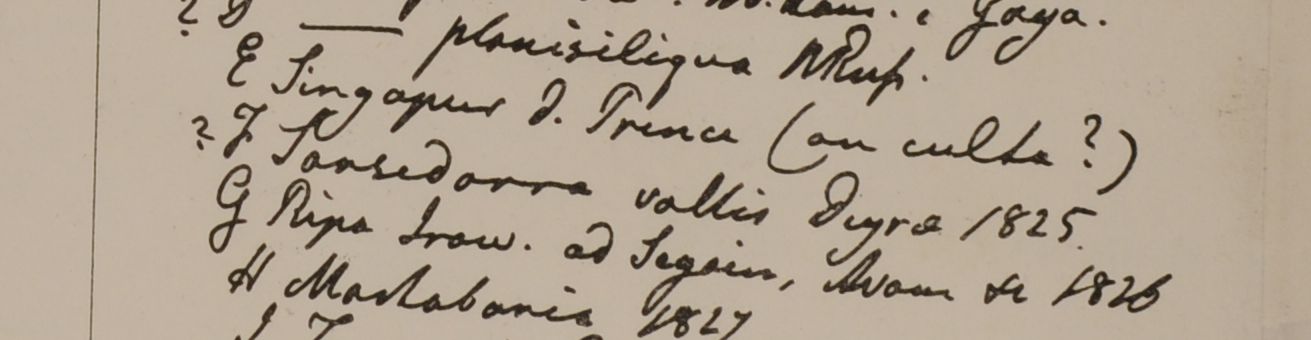 ? D Ham. e Gaya.
—— planisiliqua HRoxb.
E Singapur d. Prince (an culta?)
? F Sansedarra vallis Deyrae 1825.
G Ripa Iraw. ad Segain, Avam &c 1826
H Martabania 1827